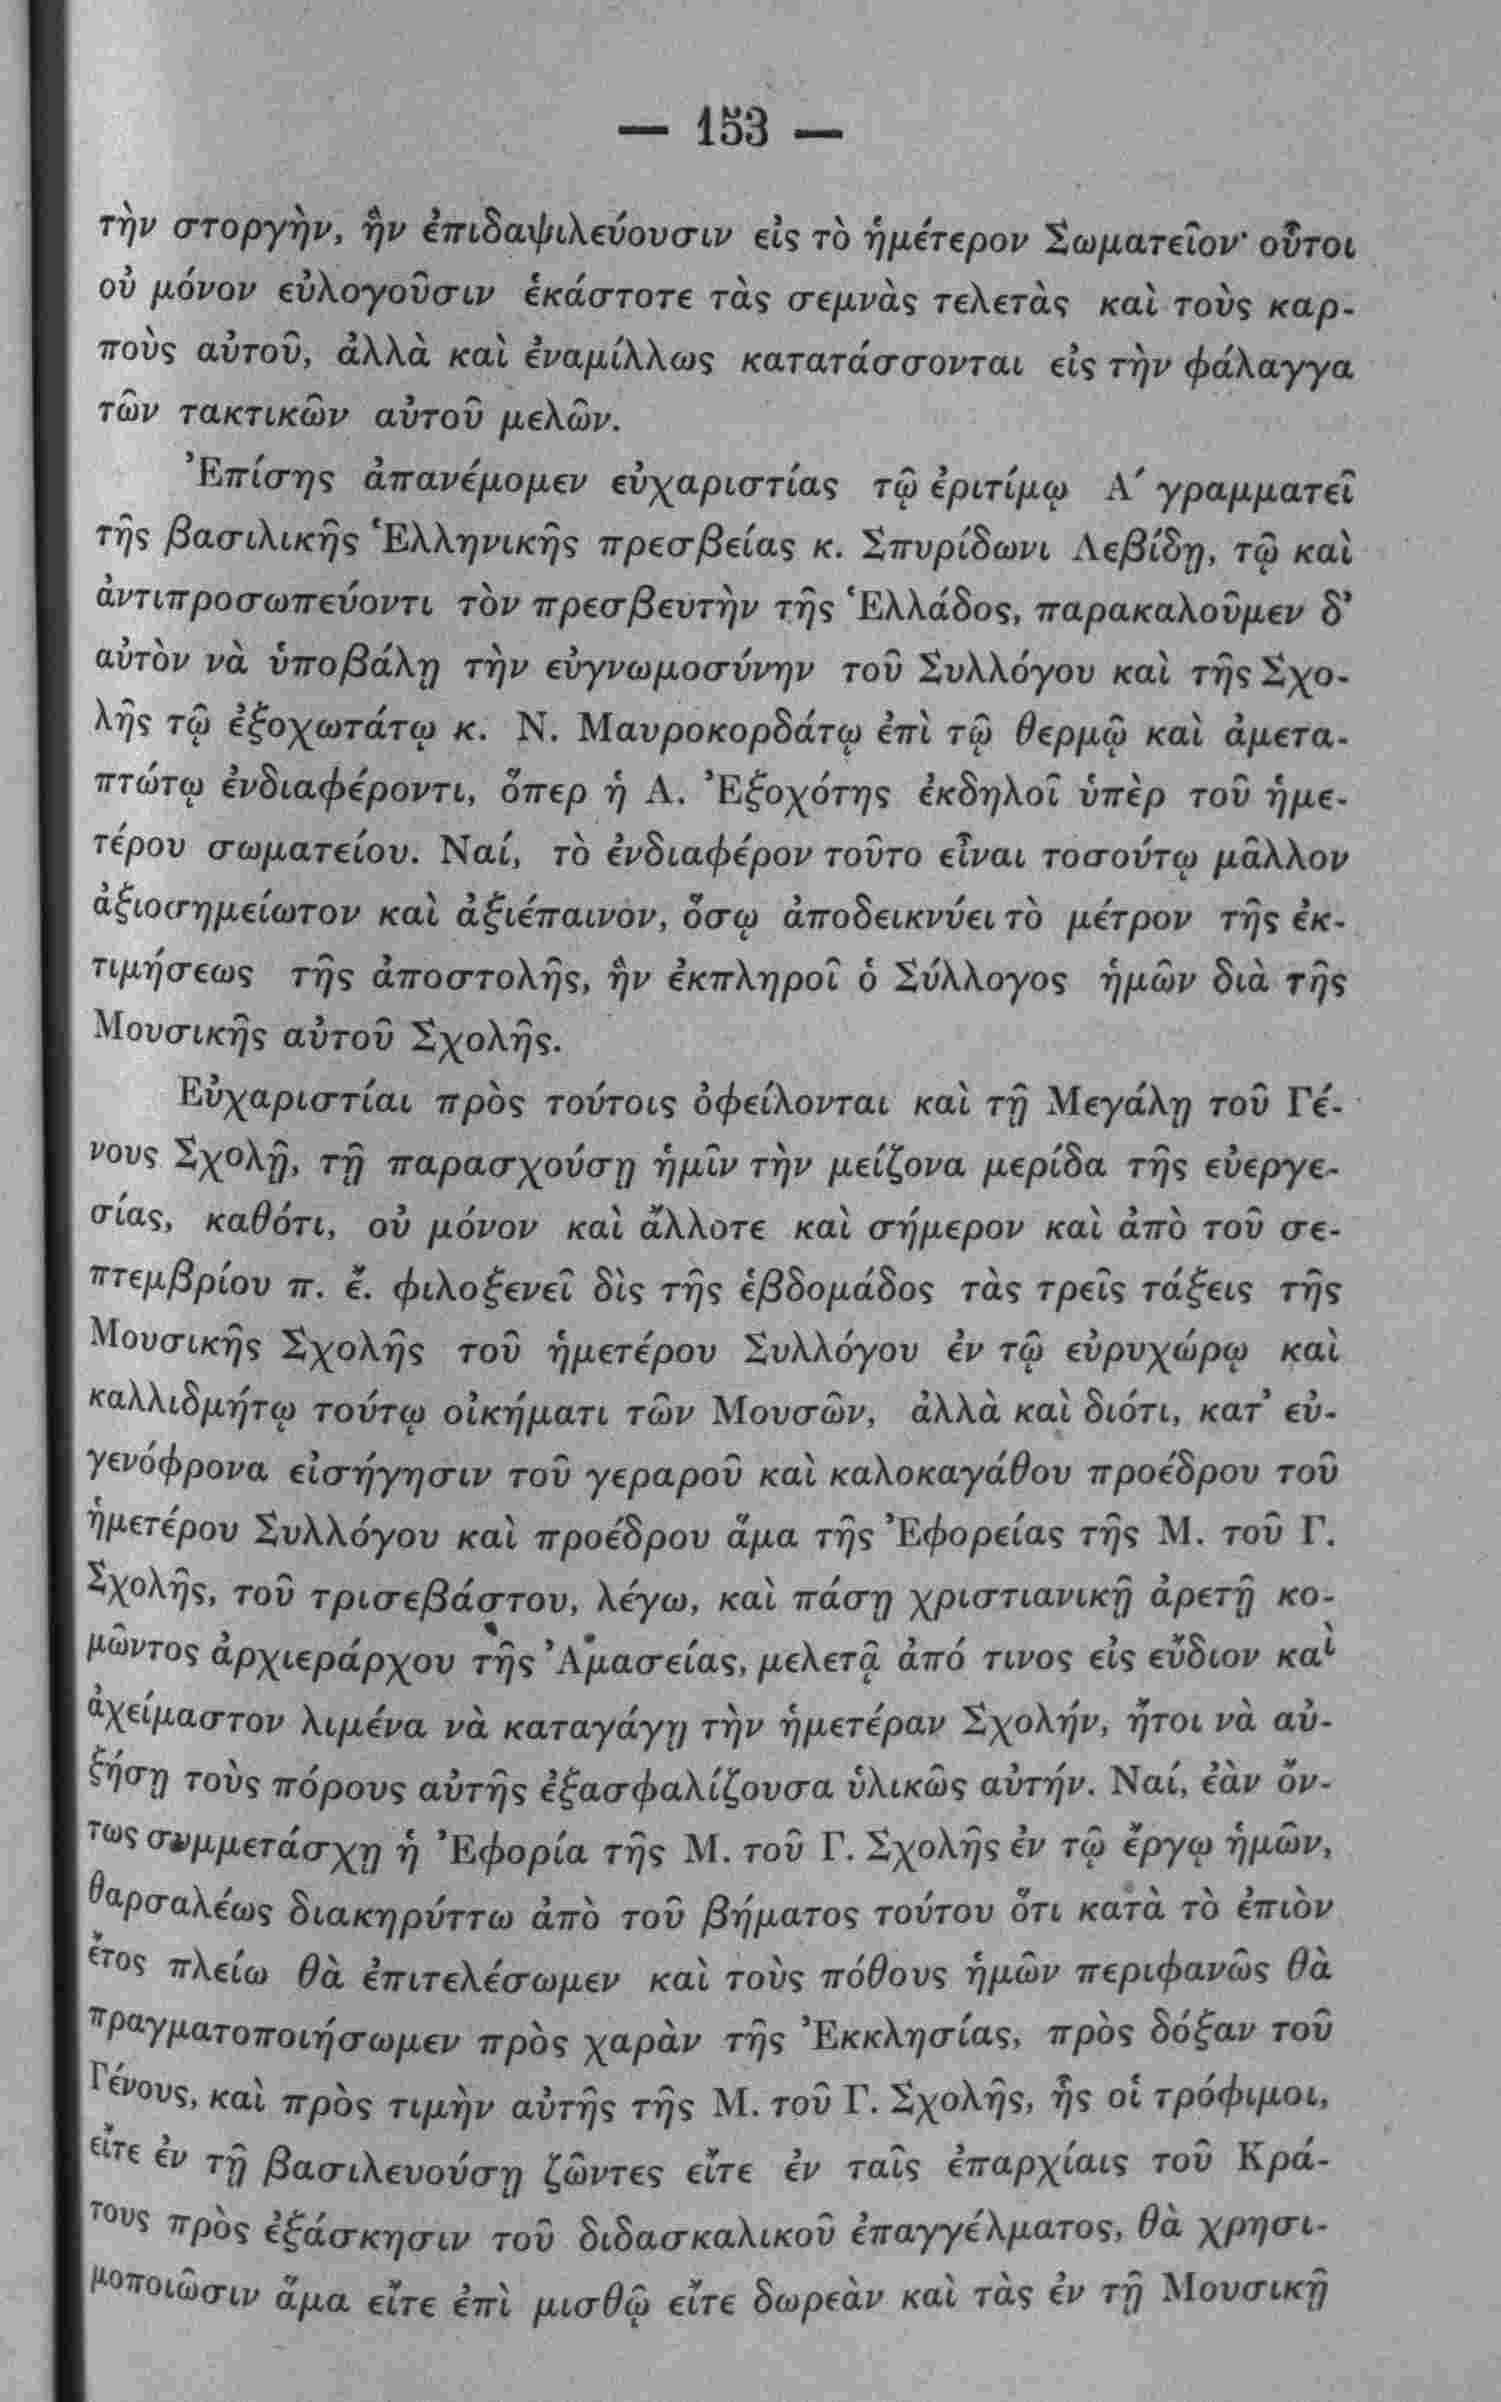 — 153 —
τὴν στοργὴν, ἣν ἐπιδαψιλεύουσιν εἰς τὸ ἡμέτερον Σωματεῖον· οὗτοι
οὐ μόνον εὐλογοῦσιν ἑκάστοτε τὰς σεμνὰς τελετὰς καὶ τοὺς καρ-
ποὺς αὐτοῦ, ἀλλὰ καὶ ἐναμίλλως κατατάσσονται εἰς τὴν φάλαγγα
τῶν τακτικῶν αὐτοῦ μελῶν.
Ἐπίσης ἀπανέμομεν εὐχαριστίας τῷ ἐριτίμῳ Α΄ γραμματεῖ
τῆς βασιλικῆς Ἑλληνικῆς πρεσβείας κ. Σπυρίδωνι Λεβίδῃ, τῷ καὶ
ἀντιπροσωπεύοντι τὸν πρεσβευτὴν τῆς Ἑλλάδος, παρακαλοῦμεν δ’
αὐτὸν νὰ ὑποβάλῃ τὴν εὐγνωμοσύνην τοῦ Συλλόγου καὶ τῆς Σχο-
λῆς τῷ ἐξοχωτάτῳ κ. Ν. Μαυροκορδάτῳ ἐπὶ τῷ θερμῷ καὶ ἀμετα-
πτώτῳ ἐνδιαφέροντι, ὅπερ ἡ Α. Ἐξοχότης ἐκδηλοῖ ὑπὲρ τοῦ ἡμε-
τέρου σωματείου. Ναί, τὸ ἐνδιαφέρον τοῦτο εἶναι τοσούτῳ μᾶλλον
ἀξιοσημείωτον καὶ ἀξιέπαινον, ὅσῳ ἀποδεικνύει τὸ μέτρον τῆς ἐκ-
τιμήσεως τῆς ἀποστολῆς, ἣν ἐκπληροῖ ὁ Σύλλογος ἡμῶν διὰ τῆς
Μουσικῆς αὐτοῦ Σχολῆς.
Εὐχαριστίαι πρὸς τούτοις ὀφείλονται καὶ τῇ Μεγάλῃ τοῦ Γέ-
νους Σχολῇ, τῇ παρασχούσῃ ἡμῖν τὴν μείζονα μερίδα τῆς εὐεργε-
σίας, καθότι, οὐ μόνον καὶ ἄλλοτε καὶ σήμερον καὶ ἀπὸ τοῦ σε-
πτεμβρίου π. ἔ. φιλοξενεῖ δὶς τῆς ἑβδομάδος τὰς τρεῖς τάξεις τῆς
Μουσικῆς Σχολῆς τοῦ ἡμετέρου Συλλόγου ἐν τῷ εὐρυχώρῳ καὶ
καλλιδμήτῳ τούτῳ οἰκήματι τῶν Μουσῶν, ἀλλὰ καὶ διότι, κατ’ εὐ-
γενόφρονα εἰσήγησιν τοῦ γεραροῦ καὶ καλοκαγάθου προέδρου τοῦ
ἡμετέρου Συλλόγου καὶ προέδρου ἅμα τῆς Ἐφορείας τῆς Μ. τοῦ Γ.
Σχολῆς, τοῦ τρισεβάστου, λέγω, καὶ πάσῃ χριστιανικῇ ἀρετῇ κο-
μῶντος ἀρχιεράρχου τῆς Ἀμασείας, μελετᾷ ἀπό τινος εἰς εὔδιον καὶ
ἀχείμαστον λιμένα νὰ καταγάγῃ τὴν ἡμετέραν Σχολήν, ἤτοι νὰ αὐ-
ξήσῃ τοὺς πόρους αὐτῆς ἐξασφαλίζουσα ὑλικῶς αὐτήν. Ναί, ἐὰν ὄν-
τως συμμετάσχῃ ἡ Ἐφορία τῆς Μ. τοῦ Γ. Σχολῆς ἐν τῷ ἔργῳ ἡμῶν,
θαρσαλέως διακηρύττω ἀπὸ τοῦ βήματος τούτου ὅτι κατὰ τὸ ἐπιὸν
ἔτος πλείω θὰ ἐπιτελέσωμεν καὶ τοὺς πόθους ἡμῶν περιφανῶς θὰ
πραγματοποιήσωμεν πρὸς χαρὰν τῆς Ἐκκλησίας, πρὸς δόξαν τοῦ
Γένους, καὶ πρὸς τιμὴν αὐτῆς τῆς Μ. τοῦ Γ. Σχολῆς, ἧς οἱ τρόφιμοι,
εἴτε ἐν τῇ βασιλευούσῃ ζῶντες εἴτε ἐν ταῖς ἐπαρχίαις τοῦ Κρά-
τους πρὸς ἐξάσκησιν τοῦ διδασκαλικοῦ ἐπαγγέλματος, θὰ χρησι-
μοποιῶσιν ἅμα εἴτε ἐπὶ μισθῷ εἴτε δωρεὰν καὶ τὰς ἐν τῇ Μουσικῇ